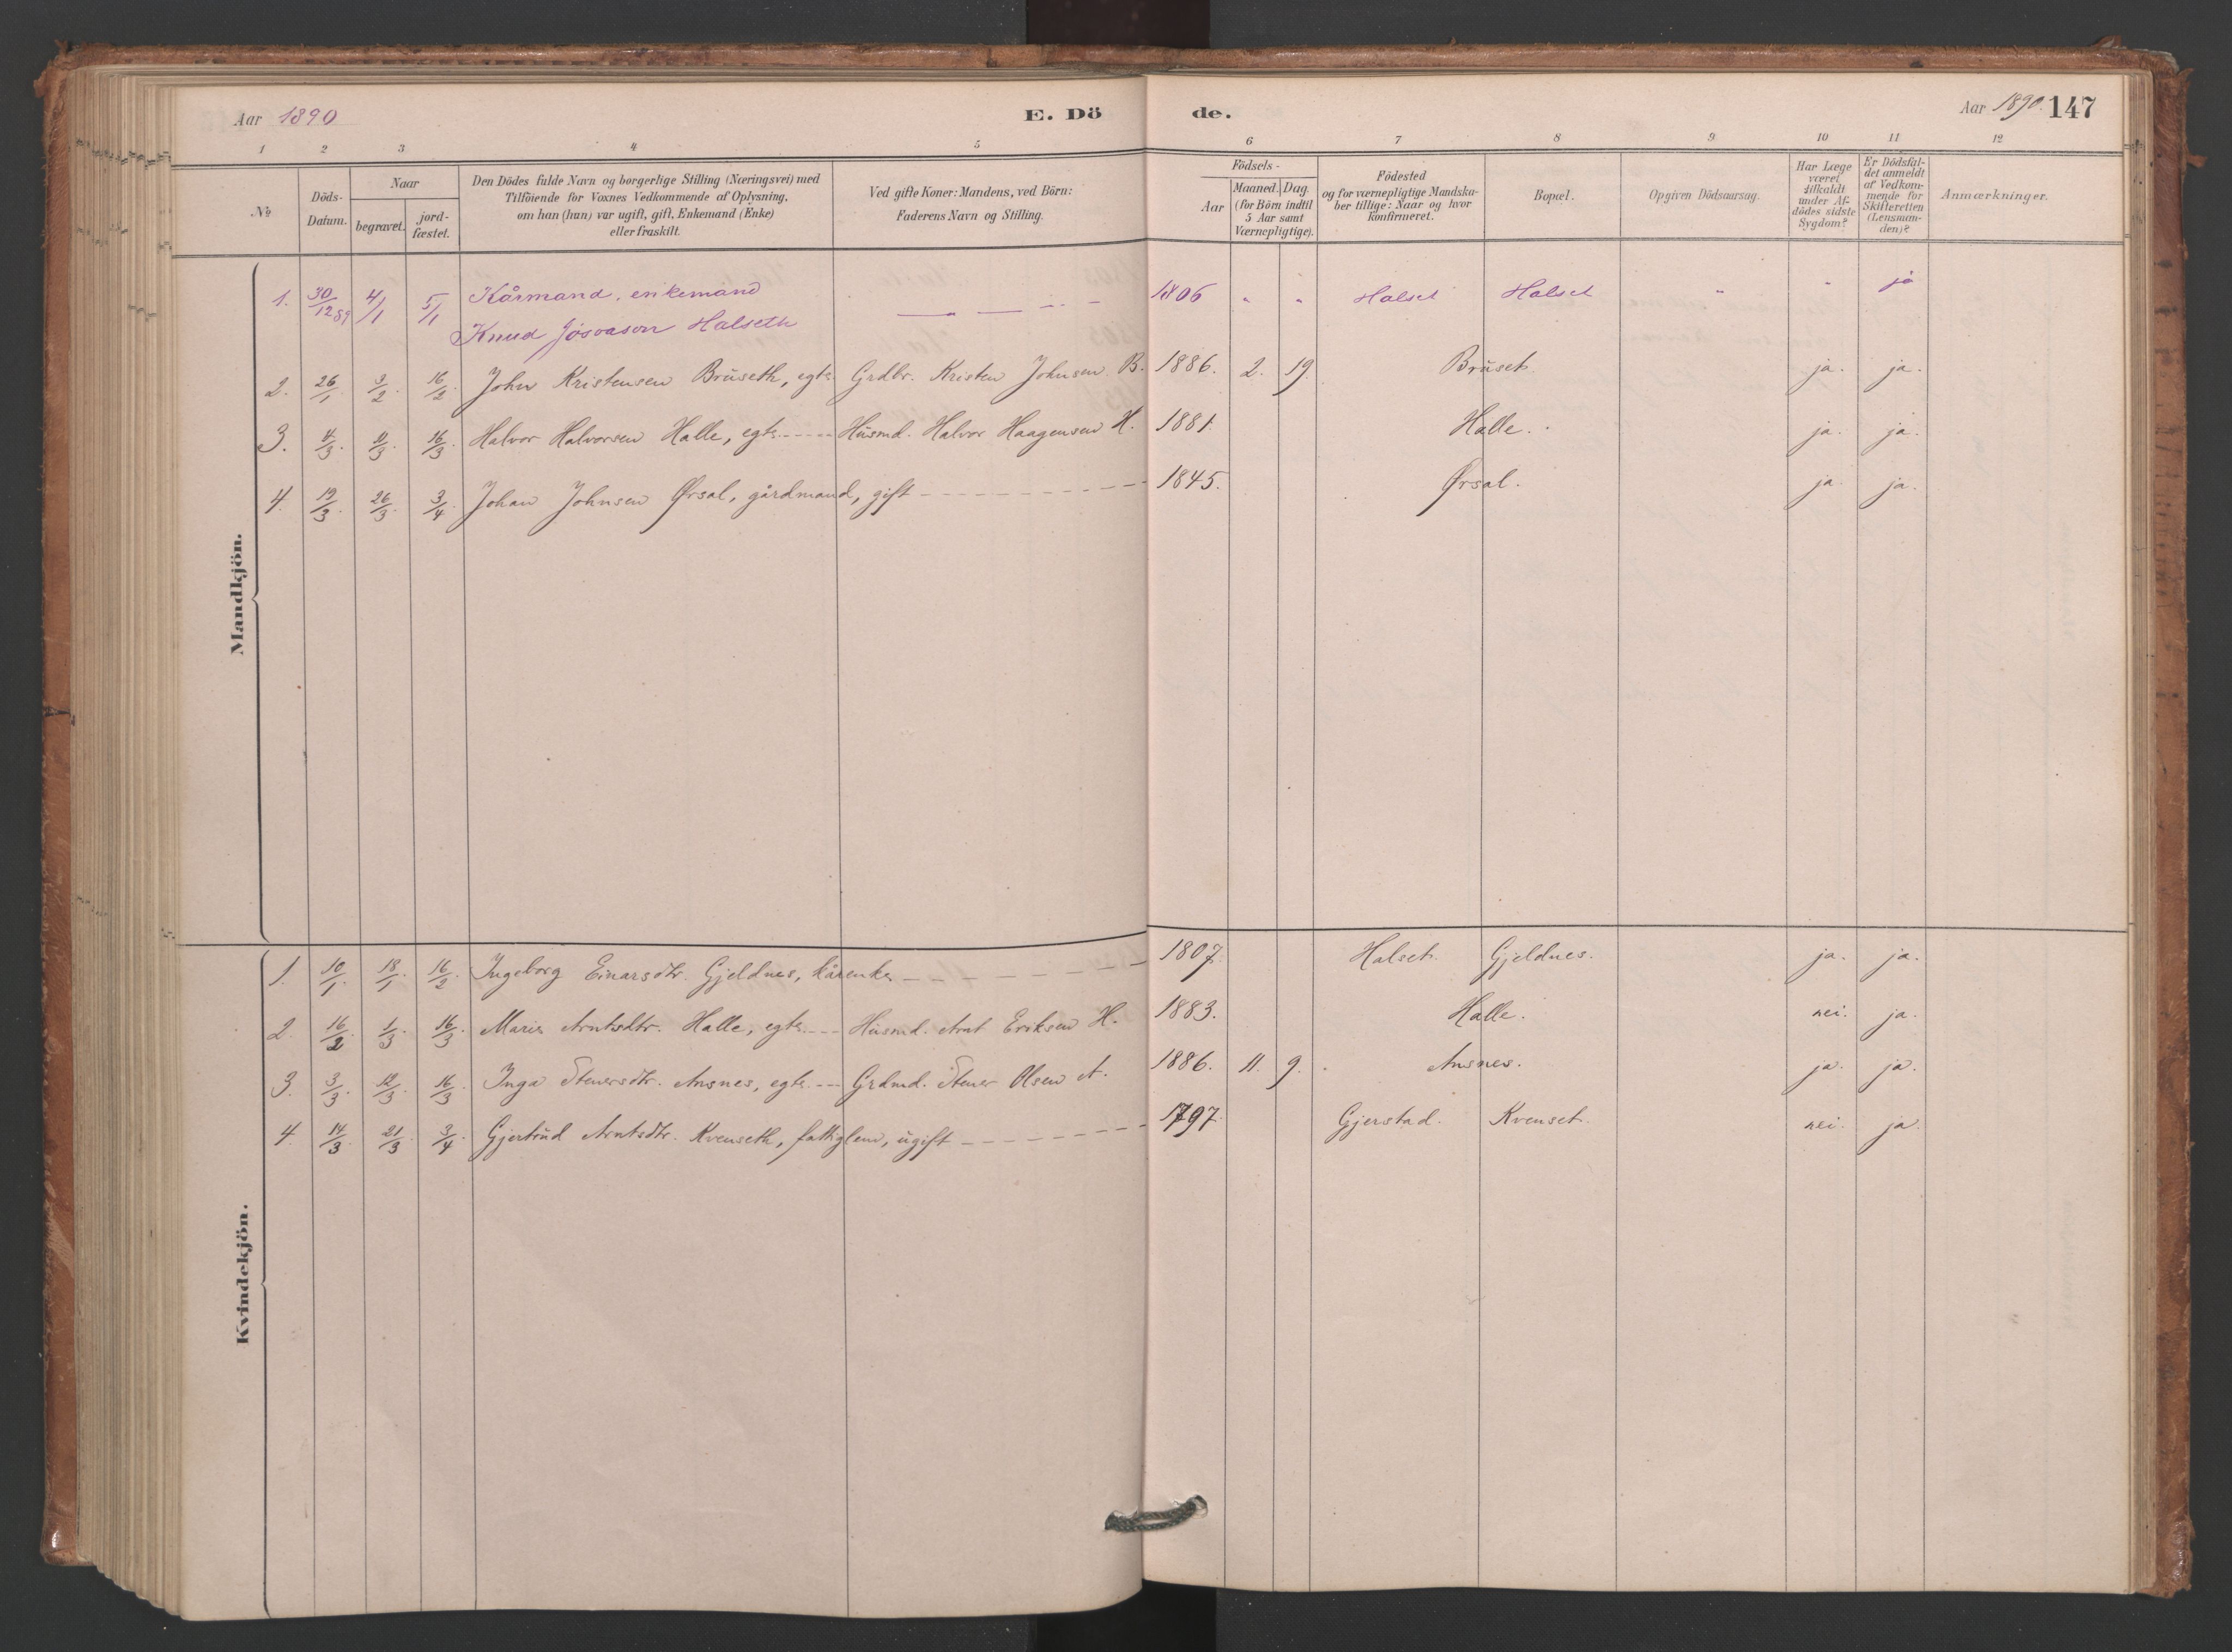 Aar 1890
E. Dö
de.
Aar 1890. 147
1 2 3 4 5 6 7 8 9 10 11 12
No
Döds-
Datum.
Naar
begravet.
jord-
fæstet.
Den Dödes fulde Navn og borgerlige Stilling (Næringsvei) med
Tilföiende for Voxnes Vedkommende af Oplysning,
om han (hun) var ugift, gift, Enkemand (Enke)
eller fraskilt.
Ved gifte Koner: Mandens, ved Börn:
Faderens Navn og Stilling.
Födsels-
Aar
Maaned. Dag.
(for Börn indtil
5 Aar samt
Værnepligtige).
Födested
og for værnepligtige Mandska-
ber tillige: Naar og hvor
konfirmeret.
Bopæl.
Opgiven Dödsaarsag.
Har Læge
været
tilkaldt
under Af-
dødes sidste
Sygdom?
Er Dödsfal-
det anmeldt
af Vedkom-
mende for
Skifteretten
(Lensman-
den)?
Anmærkninger.
Mandkjön.
1. 30/12 89 4/1 5/1 Kårmand, enkemand 1806 " " Halset Halset " " ja
Knud Josvason Halseth
2. 26/1 3/2 16/2 John Kristensen Bruseth, egte Grdbr. Kristen Johnsen B. 1886. 2. 19. Bruset. ja. ja.
3. 4/3 11/3 16/3 Halvor Halvorsen Halle, egte Husmd. Halvor Haagensen H. 1881. Halle. ja. ja.
4. 19/3 26/3 3/4 Johan Johnsen Ørsal, gårdmand, gift 1845. Ørsal. ja. ja.
Kvindekjön.
1. 10/1 18/1 16/2 Ingeborg Einarsdtr. Gjeldnes, kårenke 1807. Halset. Gjeldnes. ja. ja.
2. 16/2 1/3 16/3 Marie Arntsdtr. Halle, egte Husmd. Arnt Eriksen H. 1883. Halle. nei. ja.
3. 3/3 12/3 16/3 Inga Stenersdtr. Ansnes, egte Grdmd. Stener Olsen A. 1886. 11. 9. Ansnes. ja. ja.
4. 14/3 21/3 3/4 Gjertrud Arntsdtr. Kvenseth, fattiglem, ugift 1797. Gjerstad. Kvenset. nei. ja.